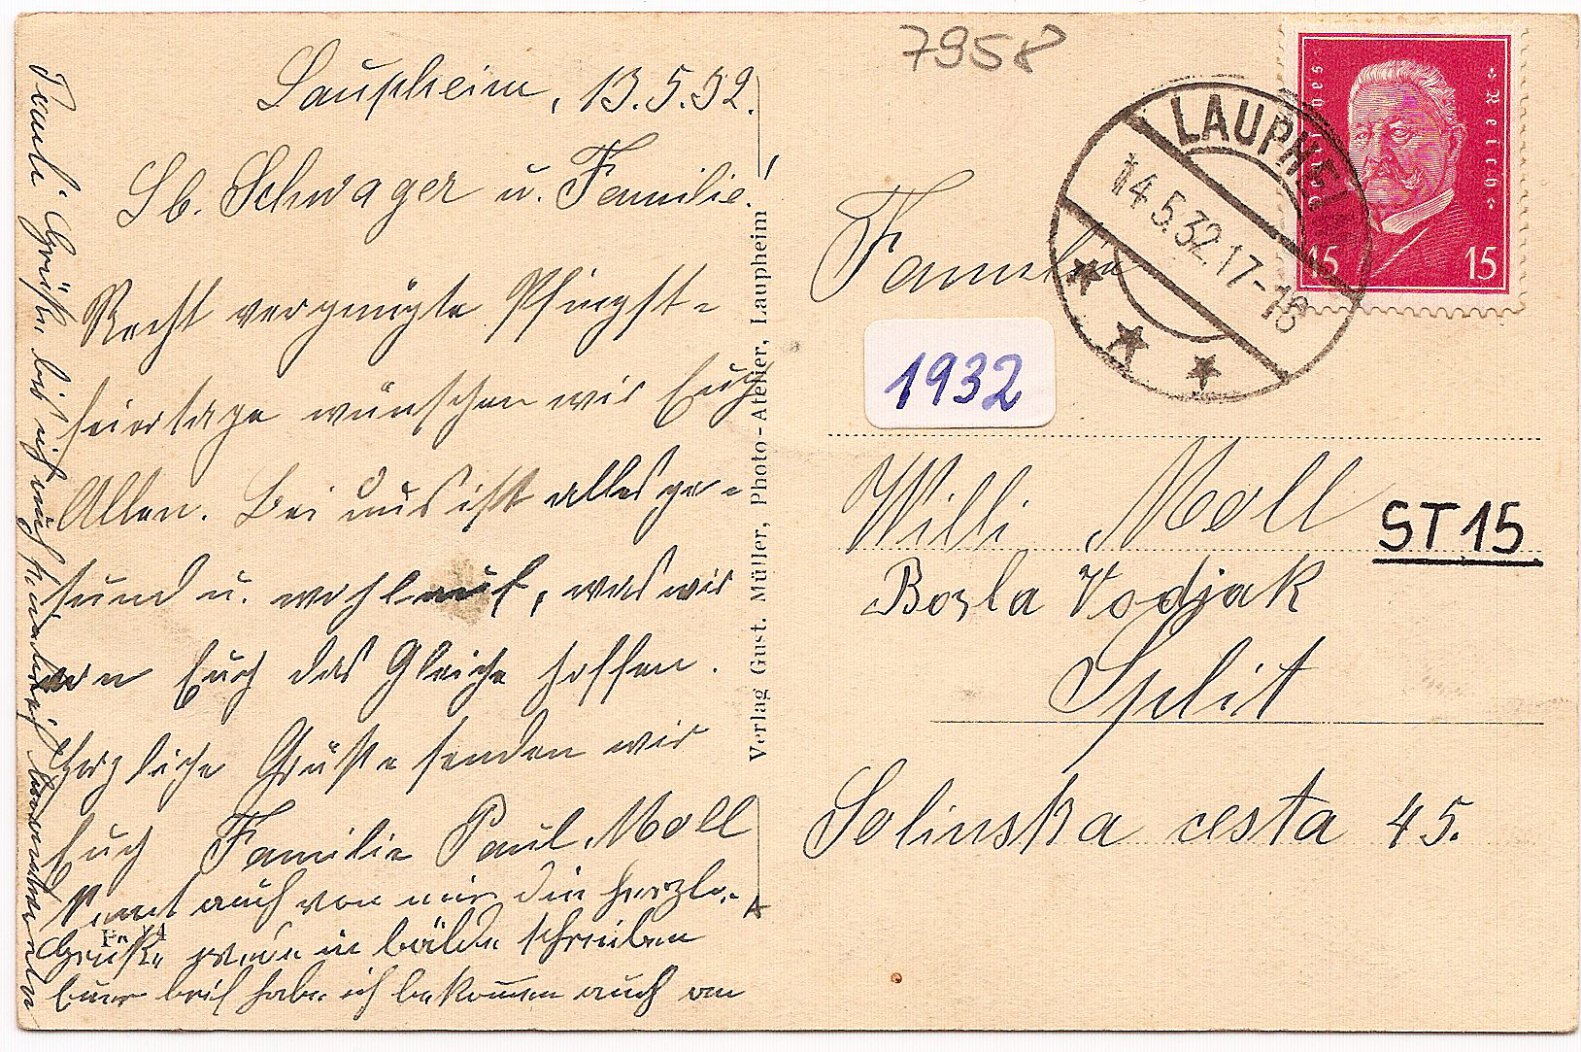 7958
Laupheim, 13.5.32.
Lb. Schwager u. Familie!
Recht vergnügte Pfingst-
feiertage wünschen wir Euch
Allen. Bei uns ist alles ge-
sund u. wohlauf, was wir
von Euch das Gleiche hoffen.
Herzliche Grüße senden wir
Euch Familie Paul Moll
auch von mir die herzl.
Grüße in bälde schreiben
Euer brif habe ich bekommen auch
Grüße bis ich Euch
Verlag Gust. Müller, Photo-Atelier, Laupheim
LAUPHEI
14.5.32.17-18
Deutsches Reich
15 15
Familie
1932
Willi Moll
ST15
Borla Vodjak
Split
Solinska cesta 45.